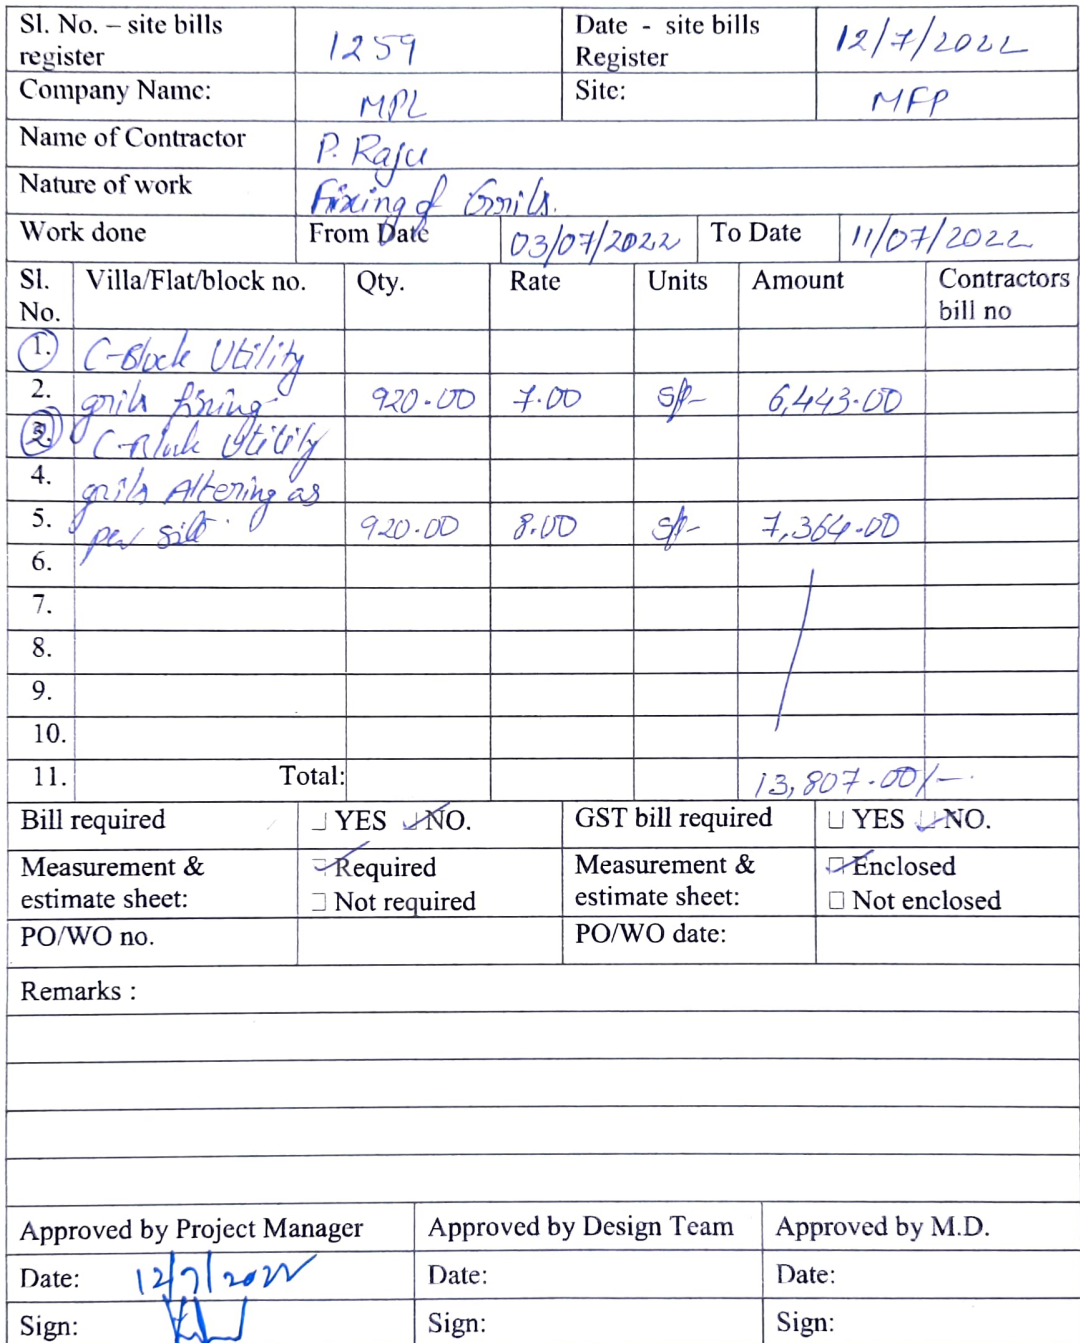 Sl. No. – site bills register 1259 Date - site bills Register 12/7/2022
Company Name: MPL Site: MFP
Name of Contractor P. Raju
Nature of work Fixing of Grills.
Work done From Date 03/07/2022 To Date 11/07/2022
Sl. No. Villa/Flat/block no. Qty. Rate Units Amount Contractors bill no
1. C-Block Utility
2. grills fixing 920.00 7.00 sft 6,443.00
2. C-Block Utility
4. grills Altering as
5. per site 920.00 8.00 sft 7,364.00
6.
7.
8.
9.
10.
11. Total: 13,807.00/-
Bill required YES NO. GST bill required YES NO.
Measurement & estimate sheet: Required Measurement & estimate sheet: Enclosed
Not required Not enclosed
PO/WO no. PO/WO date:
Remarks :
Approved by Project Manager Approved by Design Team Approved by M.D.
Date: 12/7/2022 Date: Date:
Sign: Sign: Sign: